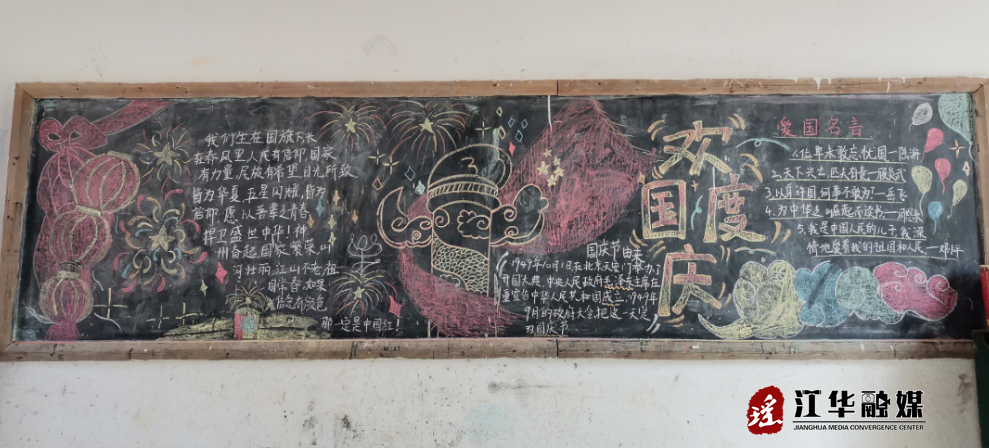 我们生在国旗下长
在春风里人民有信仰国家
有力量民族有希望目光所致
皆为华夏五星闪耀皆为
信仰愿以吾辈之青春
捍卫盛世中华!神
州奋起国家繁荣山
河壮丽江山不老祖
国信念有颜色
那一定是中国红!
国庆节由来
1949年10月1日在北京天安门举办了
开国大典,中央人民政府毛泽东主席在
宣告中华人民共和国成立1949年
的政府大会把这一天定
为国庆节
欢
国度
庆
爱国名言
1.位卑未敢忘忧国—陆游
2.天下兴亡,匹夫有责—顾炎武
3.以身许国,何事不敢为?—岳飞
4.为中华之崛起而读书—周恩来
5.我是中国人民的儿子,我深
情地爱着我的祖国和人民—邓小平
瑶
江华融媒
JIANGHUA MEDIA CONVERGENCE CENTER